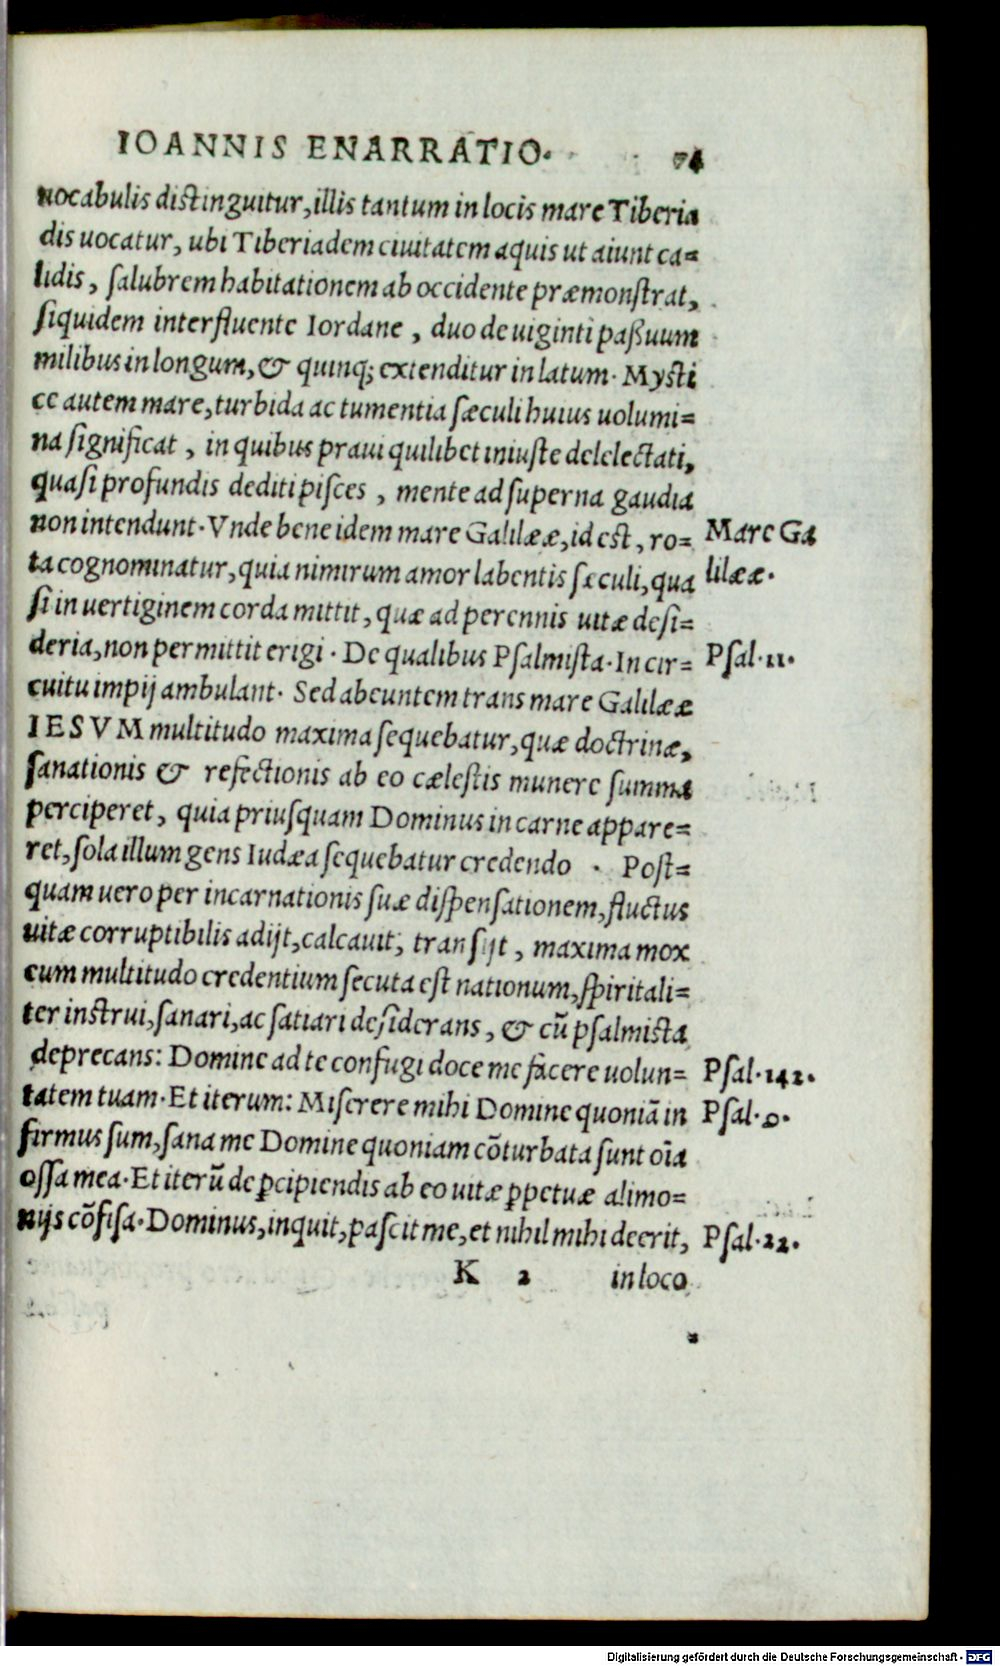 IOANNIS ENARRATIO. 74
uocabulis distinguitur, illis tantum in locis mare Tiberia
dis uocatur, ubi Tiberiadem ciuitatem aquis ut aiunt ca=
lidis, salubrem habitationem ab occidente præmonstrat,
siquidem interfluente Iordane, duo de uiginti paßuum
milibus in longum, & quinq; extenditur in latum. Mysti
ce autem mare, turbida ac tumentia sæculi huius uolumi=
na significat, in quibus praui quilibet iniuste delelectati,
quasi profundis dediti pisces, mente ad superna gaudia
non intendunt. Vnde bene idem mare Galilææ, id est, ro= Mare Ga
ta cognominatur, quia nimirum amor labentis sæculi, qua lilææ.
si in uertiginem corda mittit, quæ ad perennis uitæ desi=
deria, non permittit erigi. De qualibus Psalmista. In cir= Psal. 11.
cuitu impij ambulant. Sed abeuntem trans mare Galilææ
IESVM multitudo maxima sequebatur, quæ doctrinæ,
sanationis & refectionis ab eo cælestis munere summa
perciperet, quia priusquam Dominus in carne appare=
ret, sola illum gens Iudæa sequebatur credendo. Post=
quam uero per incarnationis suæ dispensationem, fluctus
uitæ corruptibilis adijt, calcauit, transijt, maxima mox
eum multitudo credentium secuta est nationum, spiritali=
ter instrui, sanari, ac satiari desiderans, & cū psalmista
deprecans: Domine ad te confugi doce me facere uolun= Psal. 142.
tatem tuam. Et iterum: Miserere mihi Domine quoniā in Psal. 9.
firmus sum, sana me Domine quoniam cōturbata sunt oīa
ossa mea. Et iterū de ꝑcipiendis ab eo uitæ ꝑpetuæ alimo=
nijs cōfisa. Dominus, inquit, pascit me, et nihil mihi deerit, Psal. 22.
K 2 in loco
Digitalisierung gefördert durch die Deutsche Forschungsgemeinschaft - DFG